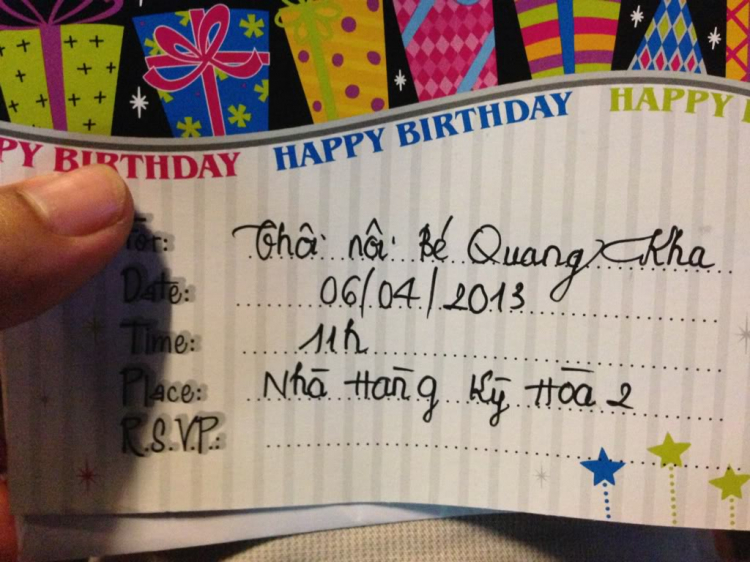 PY BIRTHDAY HAPPY BIRTHDAY HAPPY
For: Thôi nôi Bé Quang Kha
Date: 06/04/2013
Time: 11h
Place: Nhà Hàng Kỳ Hòa 2
R.S.V.P.: